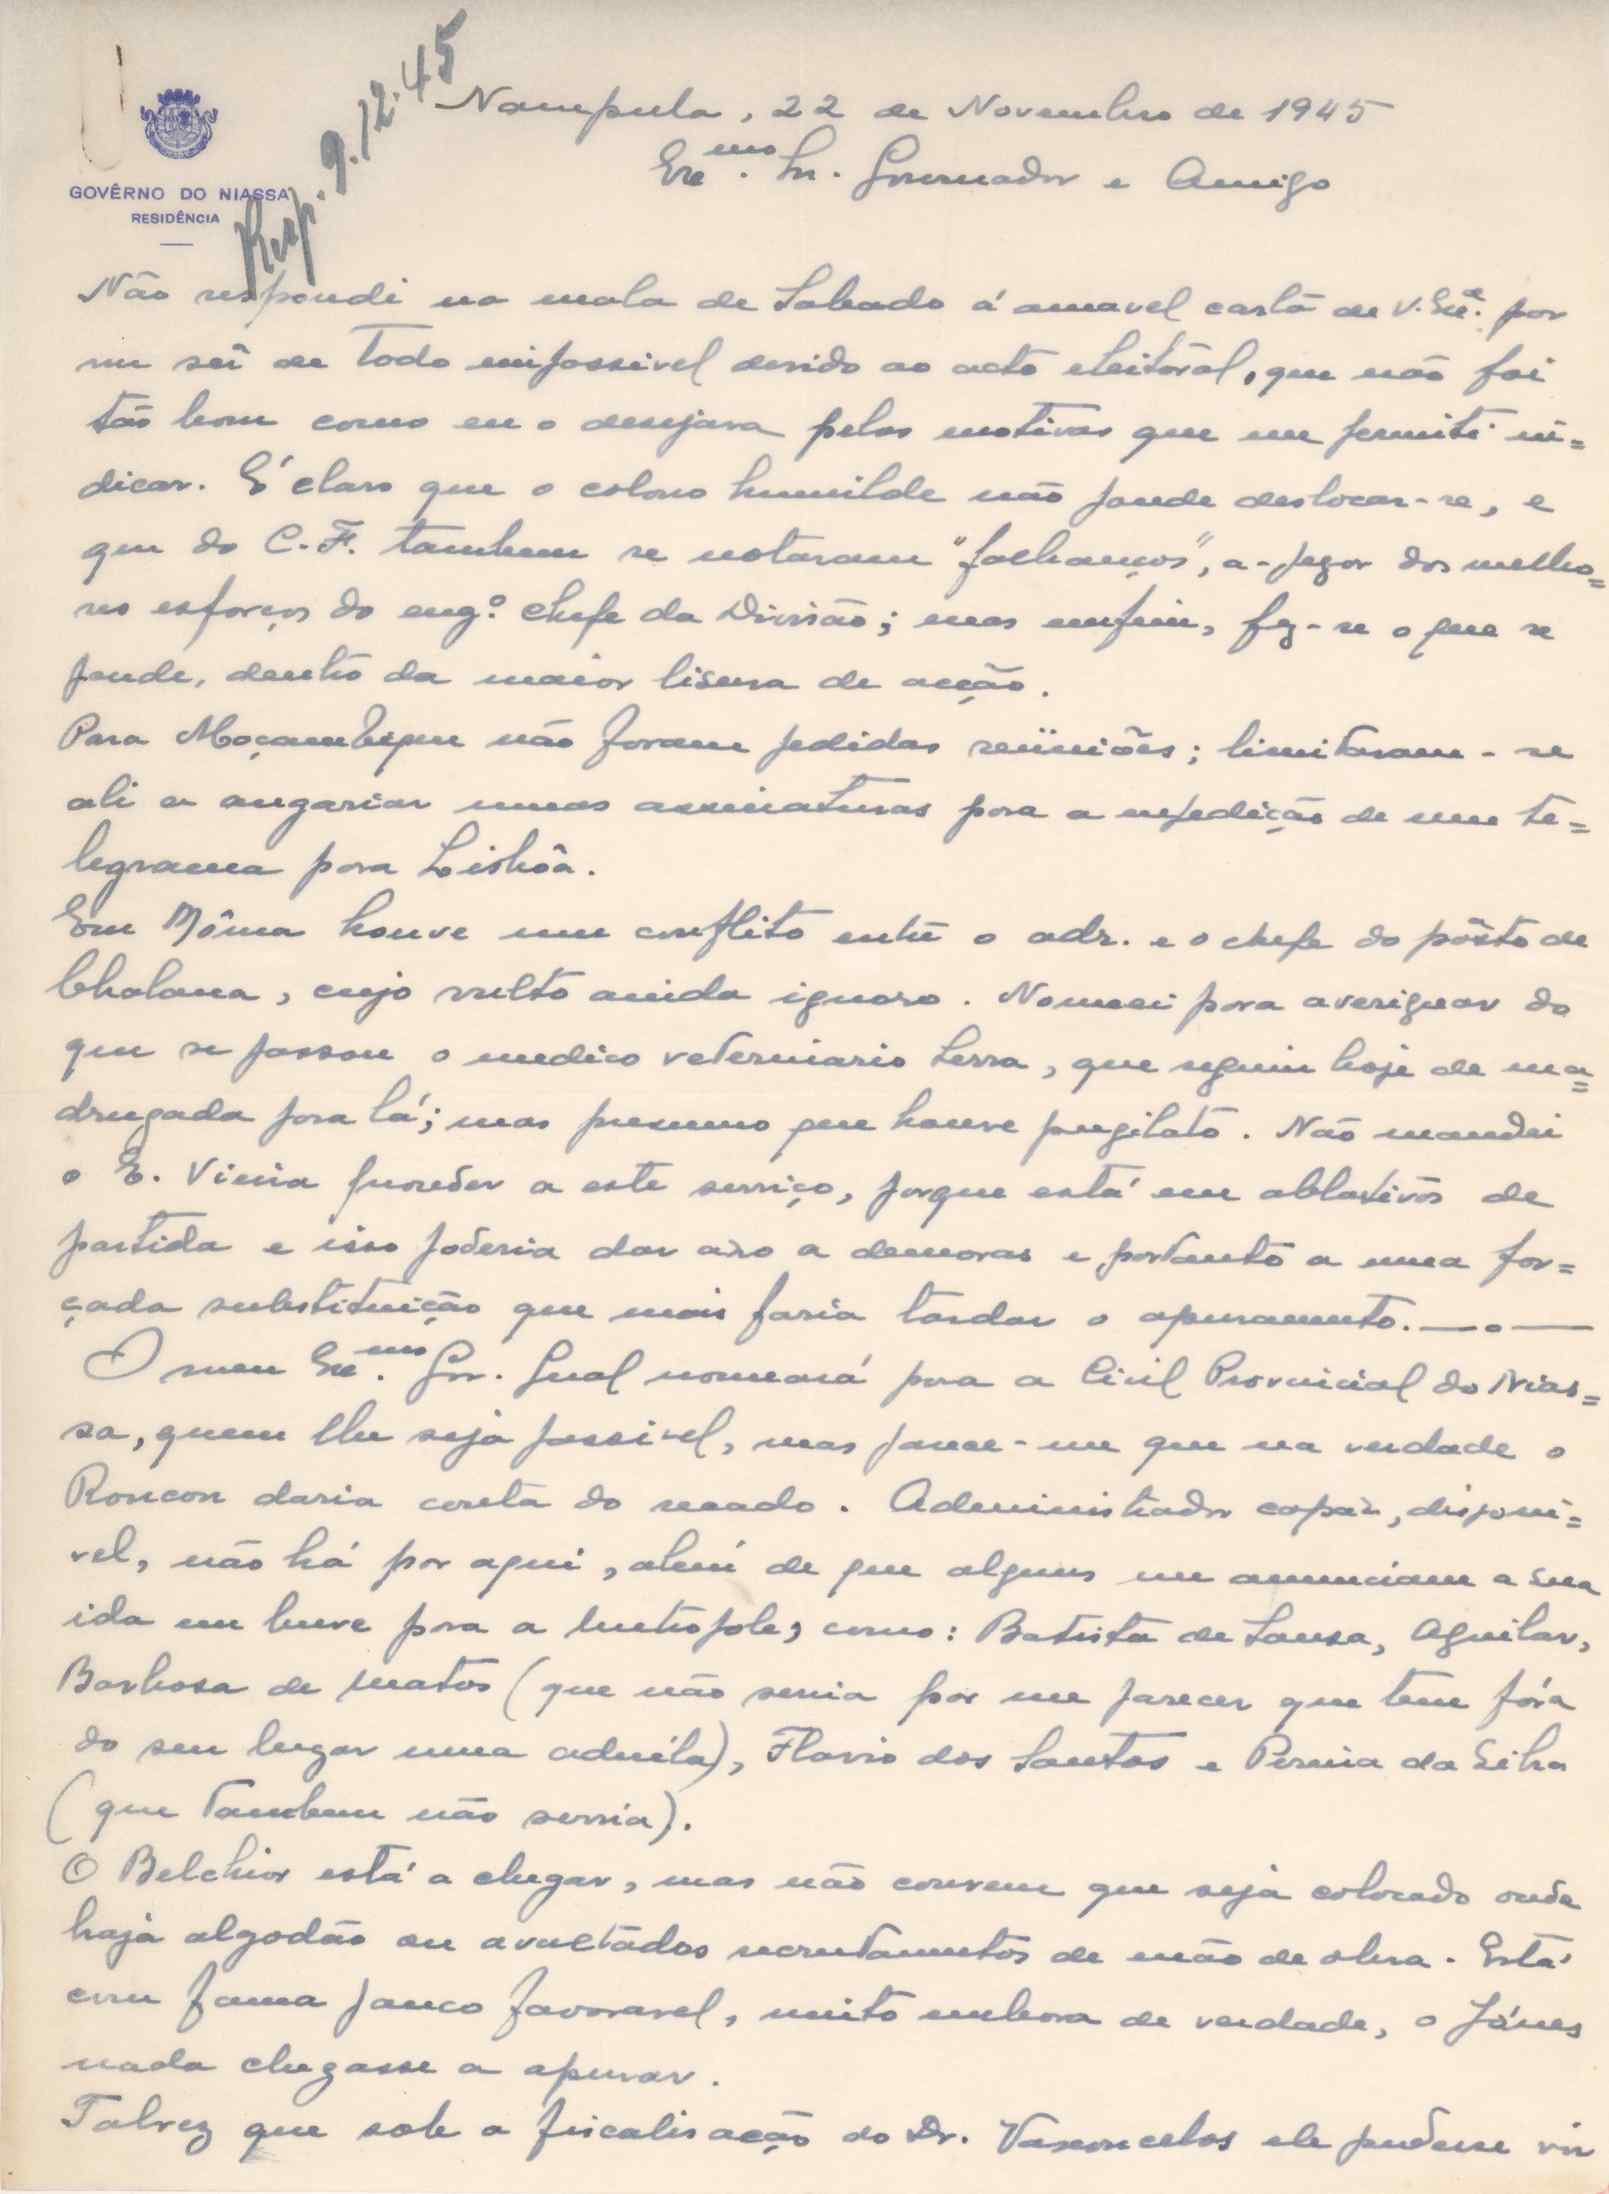 Resp. 9.12.45
GOVÊRNO DO NIASSA
RESIDÊNCIA
Nampula, 22 de Novembro de 1945
Exe.mo Sr. Governador e Amigo
Não respondi na mala de Sabado á amavel carta de V. Exê.a por
me ser de todo impossivel devido ao acto eleitoral, que não foi
tão bom como eu o desejava pelos motivos que me permiti in=
dicar. É claro que o colono humilde não poude deslocar-se, e
que do C.F. tambem se notaram "falhanços", a-pezar dos melho=
res esforços do eng.º chefe da Divisão; mas emfim, fez-se o que se
poude, dentro da maior lisura de acção.
Para Moçambique não foram pedidas reüniões; limitaram-se
ali a angariar umas assinaturas para a expedição de um te=
legrama para Lisbôa.
Em Môma houve um conflito entre o adr. e o chefe do pôsto de
Chalaua, cujo vulto ainda ignoro. Nomeei para averiguar do
que se passou o medico veterinario Serra, que seguiu hoje de ma=
drugada para lá; mas presumo que houve pugilato. Não mandei
o E. Vieira proceder a este serviço, porque está em ablativos de
partida e isso poderia dar azo a demoras e portanto a uma for=
çada substituição que mais faria tardar o apuramento. —.—
O meu Exe.mo Sr. Gual nomeará para a Civil Provincial do Nias=
sa, quem lhe seja possivel, mas parece-me que na verdade o
Roncon daria conta do recado. Administrador capaz, disponi=
vel, não há por aqui, alem de que alguns me anunciam a sua
ida em breve para a Metropole, como: Batista de Sousa, Aguilar,
Barbosa de Matos (que não servia por me parecer que tem fóra
do seu lugar uma aduela), Flavio dos Santos e Pereira da Silva
(que tambem não servia).
O Belchior está a chegar, mas não convem que seja colocado onde
haja algodão ou avultados recrutamentos de mão de obra. Está
com fama pouco favoravel, muito embora de verdade, o
nada chegasse a apurar.
Talvez que sob a fiscalisação do Dr. Vasconcelos ele pudesse vir